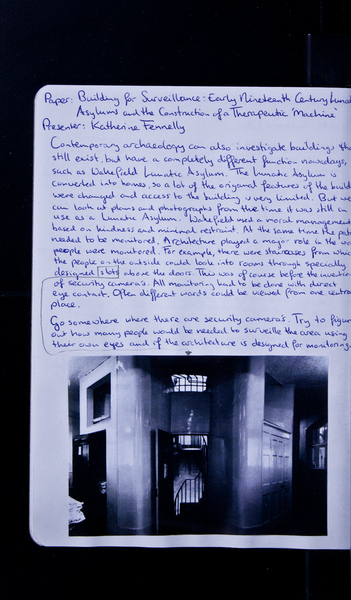 Paper: Building for Surveillance: Early Nineteenth Century Lunatic
Asylums and the Construction of a Therapeutic 'Machine'
Presenter: Katherine Fennelly
Contemporary archaeology can also investigate buildings tha
still exist, but have a completely different function nowadays,
such as Wakefield Lunatic Asylum. The Lunatic Asylum is
converted into homes, so a lot of the original features of the build
were changed and access to the building is very limited. But we
can look at plans and photographs from the time it was still in
use as a Lunatic Asylum. Wakefield used a moral management
based on kindness and minimal restraint. At the same time the pat
needed to be monitored. Architecture played a major role in the wa
people were monitored. For example, there were staircases from which
the people on the outside could look into rooms through specially
designed slots above the doors. This was of course before the inventio
of security camera's. All monitoring had to be done with direct
eye contact. Often different wards could be viewed from one central
place.
Go somewhere where there are security camera's. Try to figur
out how many people would be needed to surveille the area using
their own eyes and if the architecture is designed for monitoring.